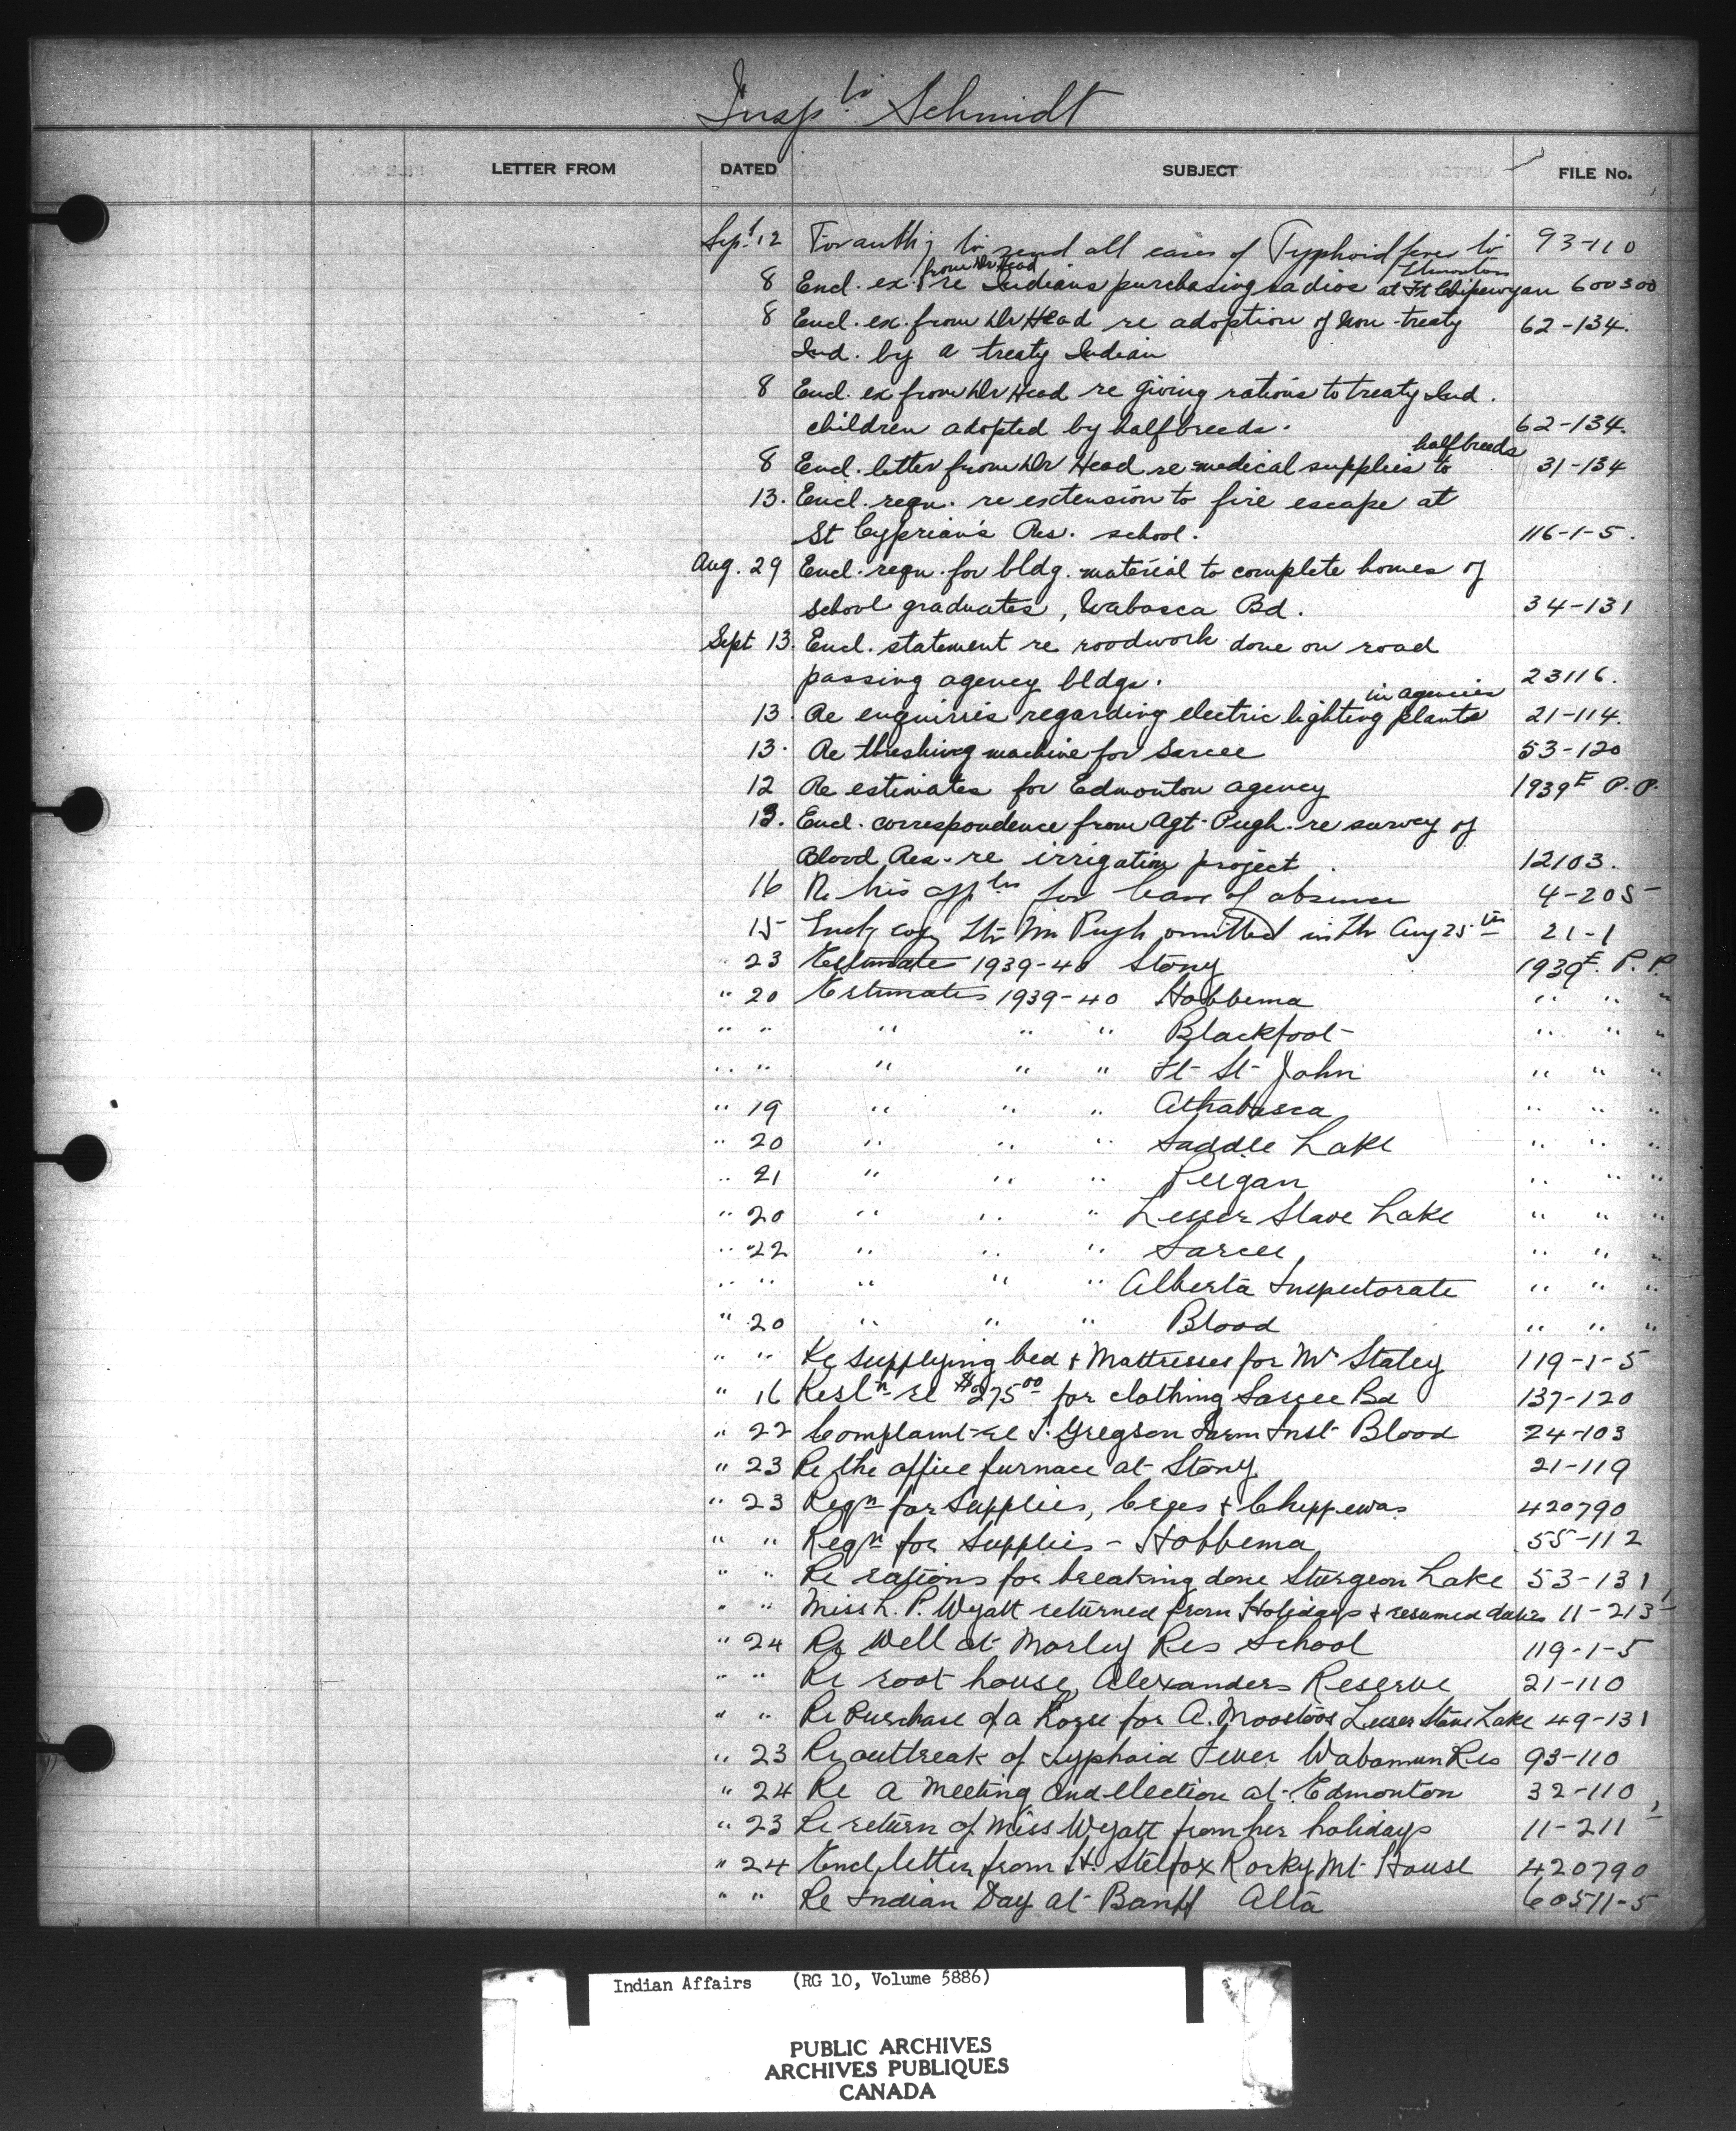 Insptr Schmidt
LETTER FROM DATED SUBJECT FILE No.
Sept 12 For authy to send all cases of Typhoid fever to Edmonton 93-110
8 Encl. ex. from Dr Head re Indians purchasing radios at Ft Chipewyan 600300
8 Encl. ex. from Dr Head re adoption of non-treaty 62-134.
Ind. by a treaty Indian
8 Encl. ex from Dr Head re giving rations to treaty Ind.
children adopted by halfbreeds. 62-134.
8 Encl. letter from Dr Head re medical supplies to halfbreeds 31-134
13. Encl. reqn. re extension to fire escape at
St Cyprian's Res. school. 116-1-5.
Aug. 29 Encl. reqn. for bldg. material to complete homes of
school graduates, Wabasca Bd. 34-131
Sept 13. Encl. statement re roodwork done on road
passing agency bldgs. 23116.
13. Re enquiries regarding electric lighting plants in agencies 21-114.
13. Re threshing machine for Sarcee 53-120
12 Re estimates for Edmonton agency 1939E P.P.
13. Encl. correspondence from Agt. Pugh. re survey of
Blood Res. re irrigation project 12103.
16 Re his appln for leave of absence 4-205
15 Encl copy ltr Mr Pugh omitted in ltr Aug 25th 21-1
" 23 Estimates 1939-40 Stony 1939E. P.P.
" 20 Estimates 1939-40 Hobbema " " "
" " " " " Blackfoot " " "
" " " " " Ft St John " " "
" 19 " " " Athabasca " " "
" 20 " " " Saddle Lake " " "
" 21 " " " Peigan " " "
" 20 " " " Lesser Slave Lake " " "
" 22 " " " Sarcee, " " "
" " " " " Alberta Inspectorate " " "
" 20 " " " Blood " " "
" " Re supplying bed & Mattresses for Mr Staley 119-1-5
" 16 Resln re $275.00 for clothing Sarcee Bd 137-120
" 22 Complaint re T. Gregson Farm Inst Blood 24-103
" 23 Re the office furnace at Stony 21-119
" 23 Reqn for Supplies, Crees & Chippewas 420790
" " Reqn for Supplies - Hobbema 55-112
" " Re rations for breaking done Sturgeon Lake 53-131
" " Miss L. P. Wyatt returned from Holidays & resumed duties 11-213
" 24 Re Well at Morley Res School 119-1-5
" " Re root house, Alexanders Reserve 21-110
" " Re Purchase of a Horse for A. Moostoos Lesser Slave Lake 49-131
" 23 Re outbreak of Typhoid Fever Wabamun Res 93-110
" 24 Re a Meeting and election at Edmonton 32-110
" 23 Re return of Miss Wyatt from her holidays 11-211
" 24 Encl letter from H. Stelfox Rocky Mt House 420790
" " Re Indian Day at Banff Alta 60511-5
Indian Affairs (RG 10, Volume 5886)
PUBLIC ARCHIVES
ARCHIVES PUBLIQUES
CANADA